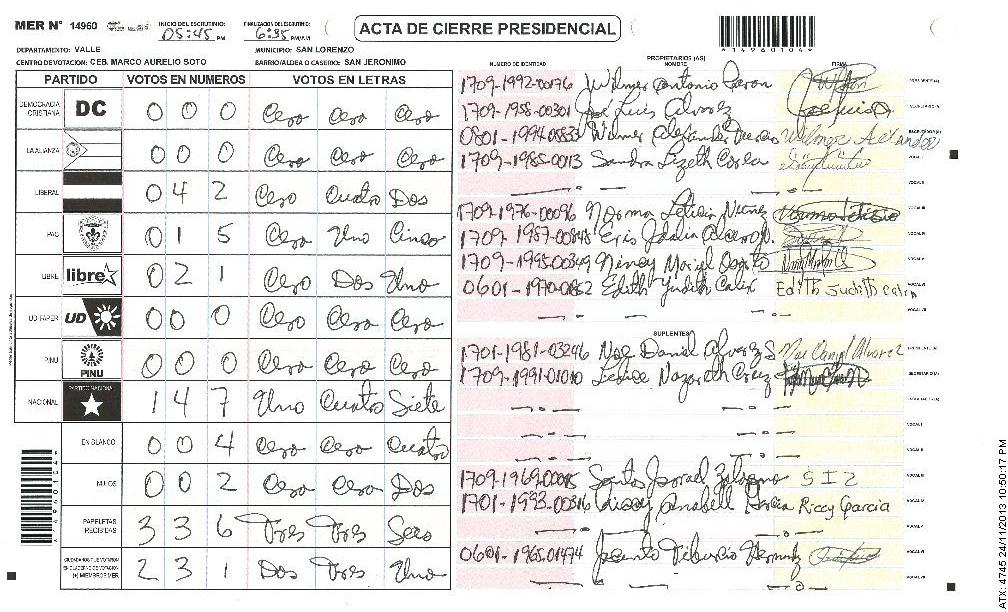 MER N° 14960 INICIO DEL ESCRUTINIO: 05:45 PM FINALIZACIÓN DEL ESCRUTINIO: 6:35 PM/AM ACTA DE CIERRE PRESIDENCIAL
*14960104*
DEPARTAMENTO: VALLE MUNICIPIO: SAN LORENZO
CENTRO DE VOTACION: CEB. MARCO AURELIO SOTO BARRIO/ALDEA O CASERIO: SAN JERONIMO
PARTIDO VOTOS EN NUMEROS VOTOS EN LETRAS
DEMOCRACIA CRISTIANA DC 0 0 0 Cero Cero Cero
LA ALIANZA 0 0 0 Cero Cero Cero
LIBERAL 0 4 2 Cero Cuatro Dos
PAC 0 1 5 Cero Uno Cinco
LIBRE libre 0 2 1 Cero Dos Uno
UD-FAPER UD 0 0 0 Cero Cero Cero
PINU PINU 0 0 0 Cero Cero Cero
NACIONAL PARTIDO NACIONAL 1 4 7 Uno Cuatro Siete
EN BLANCO 0 0 4 Cero Cero Cuatro
NULOS 0 0 2 Cero Cero Dos
PAPELETAS RECIBIDAS 3 3 6 Tres Tres Seis
CIUDADANOS QUE VOTARON
EN CUADERNO DE VOTACION
(+) MIEMBROS MER 2 3 1 Dos Tres Uno
PROPIETARIOS (AS)
NUMERO DE IDENTIDAD NOMBRE FIRMA
1709-1992-00176 Wilmer Antonio PRESIDENTE(A)
1709-1958-00301 José Luis Alvarez SECRETARIO(A)
0801-1994-05833 Wilmer Alexander Wilmer ESCRUTADOR(A)
1709-1985-0013 Sandra Lizeth VOCAL I
VOCAL II
1709-1976-00096 Norma Leticia Nuñez Norma Leticia VOCAL III
1709-1987-00848 Eris Idalia VOCAL IV
1709-1995-00349 Nency Mariel VOCAL V
0601-1970-0862 Edith Yudith Calix Edith Judith VOCAL VI
VOCAL VII
SUPLENTES
1701-1981-03246 Noe Daniel Alvarez S Noe Daniel Alvarez PRESIDENTE(A)
1709-1991-01010 Nazareth Cruz SECRETARIO(A)
ESCRUTADOR(A)
VOCAL I
VOCAL II
1709-1969-00015 Santos SIZ VOCAL III
1701-1993-00316 Anabell Garcia Riccy Garcia VOCAL IV
VOCAL V
0601-1965-01474 Jacinto Tiburcio VOCAL VI
VOCAL VII
ATX: 4745 24/11/2013 10:50:17 PM